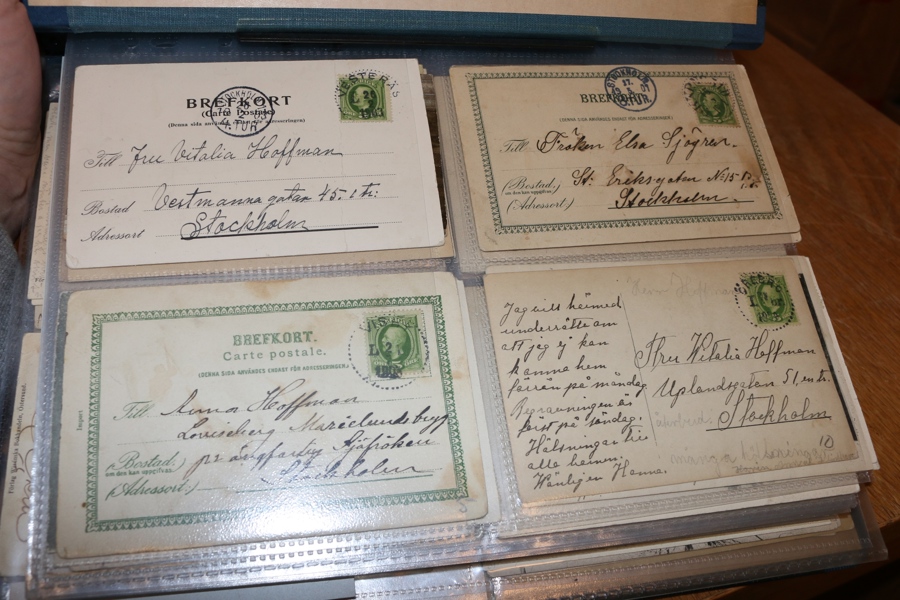 BREFKORT
(Carte Postale)
(Denna sida användes endast för adresseringen.)
VESTERÅS
Till Fru Vitalia Hoffman
Bostad Vestmannagatan 45. 1 tr.
Adressort Stockholm
STOCKHOLM
17.
4.TUR.
BREFKORT
(DENNA SIDA ANVÄNDES ENDAST FÖR ADRESSERINGEN.)
Till Fröken Elsa Sjögren.
(Bostad.) St. Eriksgatan No 15
om den kan uppgifvas
(Adressort.) Stockholm.
BREFKORT.
Carte postale.
(DENNA SIDA ANVÄNDES ENDAST FÖR ADRESSERINGEN.)
Till Anna Hoffman
Marielundsbrygg
(Bostad.) pr ångfartyg Sjöfröken
om den kan uppgifvas
(Adressort.) Stockholm
Import
Jag vill härmed
underrätta om
att jag ej kan
komma hem
förrän på måndag.
Begravningen är
först på söndag.
Hälsningar till
alla hemma.
Vänligen Hanna.
Fru Vitalia Hoffman
Uplandsgatan 51, en tr.
Stockholm
10